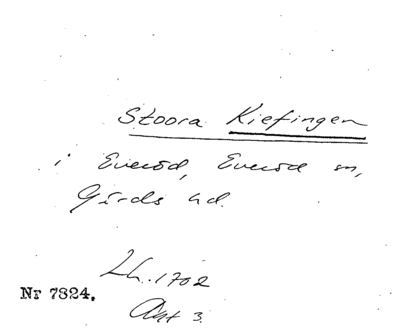 Stoora Kiefingen
i Everöd, Everöd sn,
Gärds hd.
Lh. 1702
Akt 3.
Nr 7824.